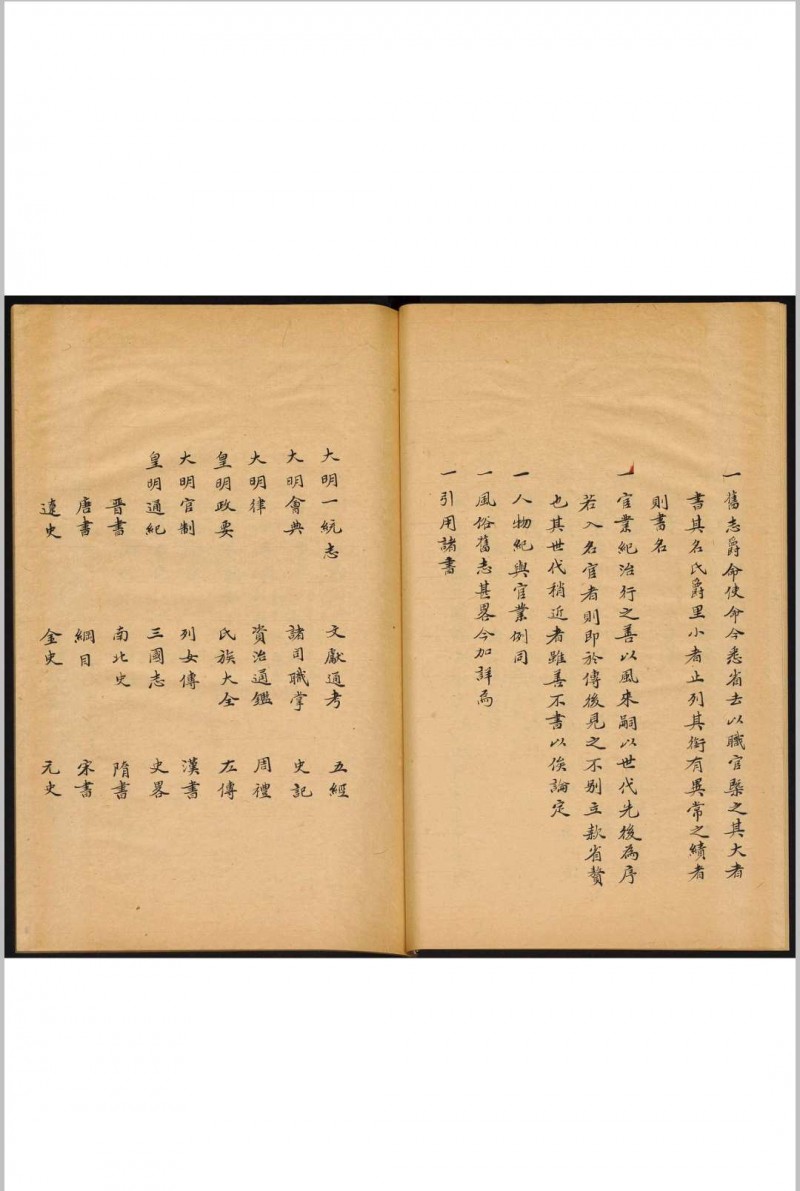 一舊志爵命使命今悉省去以職官槩之其大者
書其名氏爵里小者止列其銜有異常之績者
則書名
一官業紀治行之善以風來嗣以世代先後為序
若入名官者則即於傳後見之不别立款省贅
也其世代稍近者雖善不書以俟論定
一人物紀與官業例同
一風俗舊志甚畧今加詳焉
一引用諸書
大明一統志 文獻通考 五經
大明會典 諸司職掌 史記
大明律 資治通鑑 周禮
皇明政要 氏族大全 左傳
大明官制 列女傳 漢書
皇明通紀 三國志 史畧
晋書 南北史 隋書
唐書 綱目 宋書
遼史 金史 元史